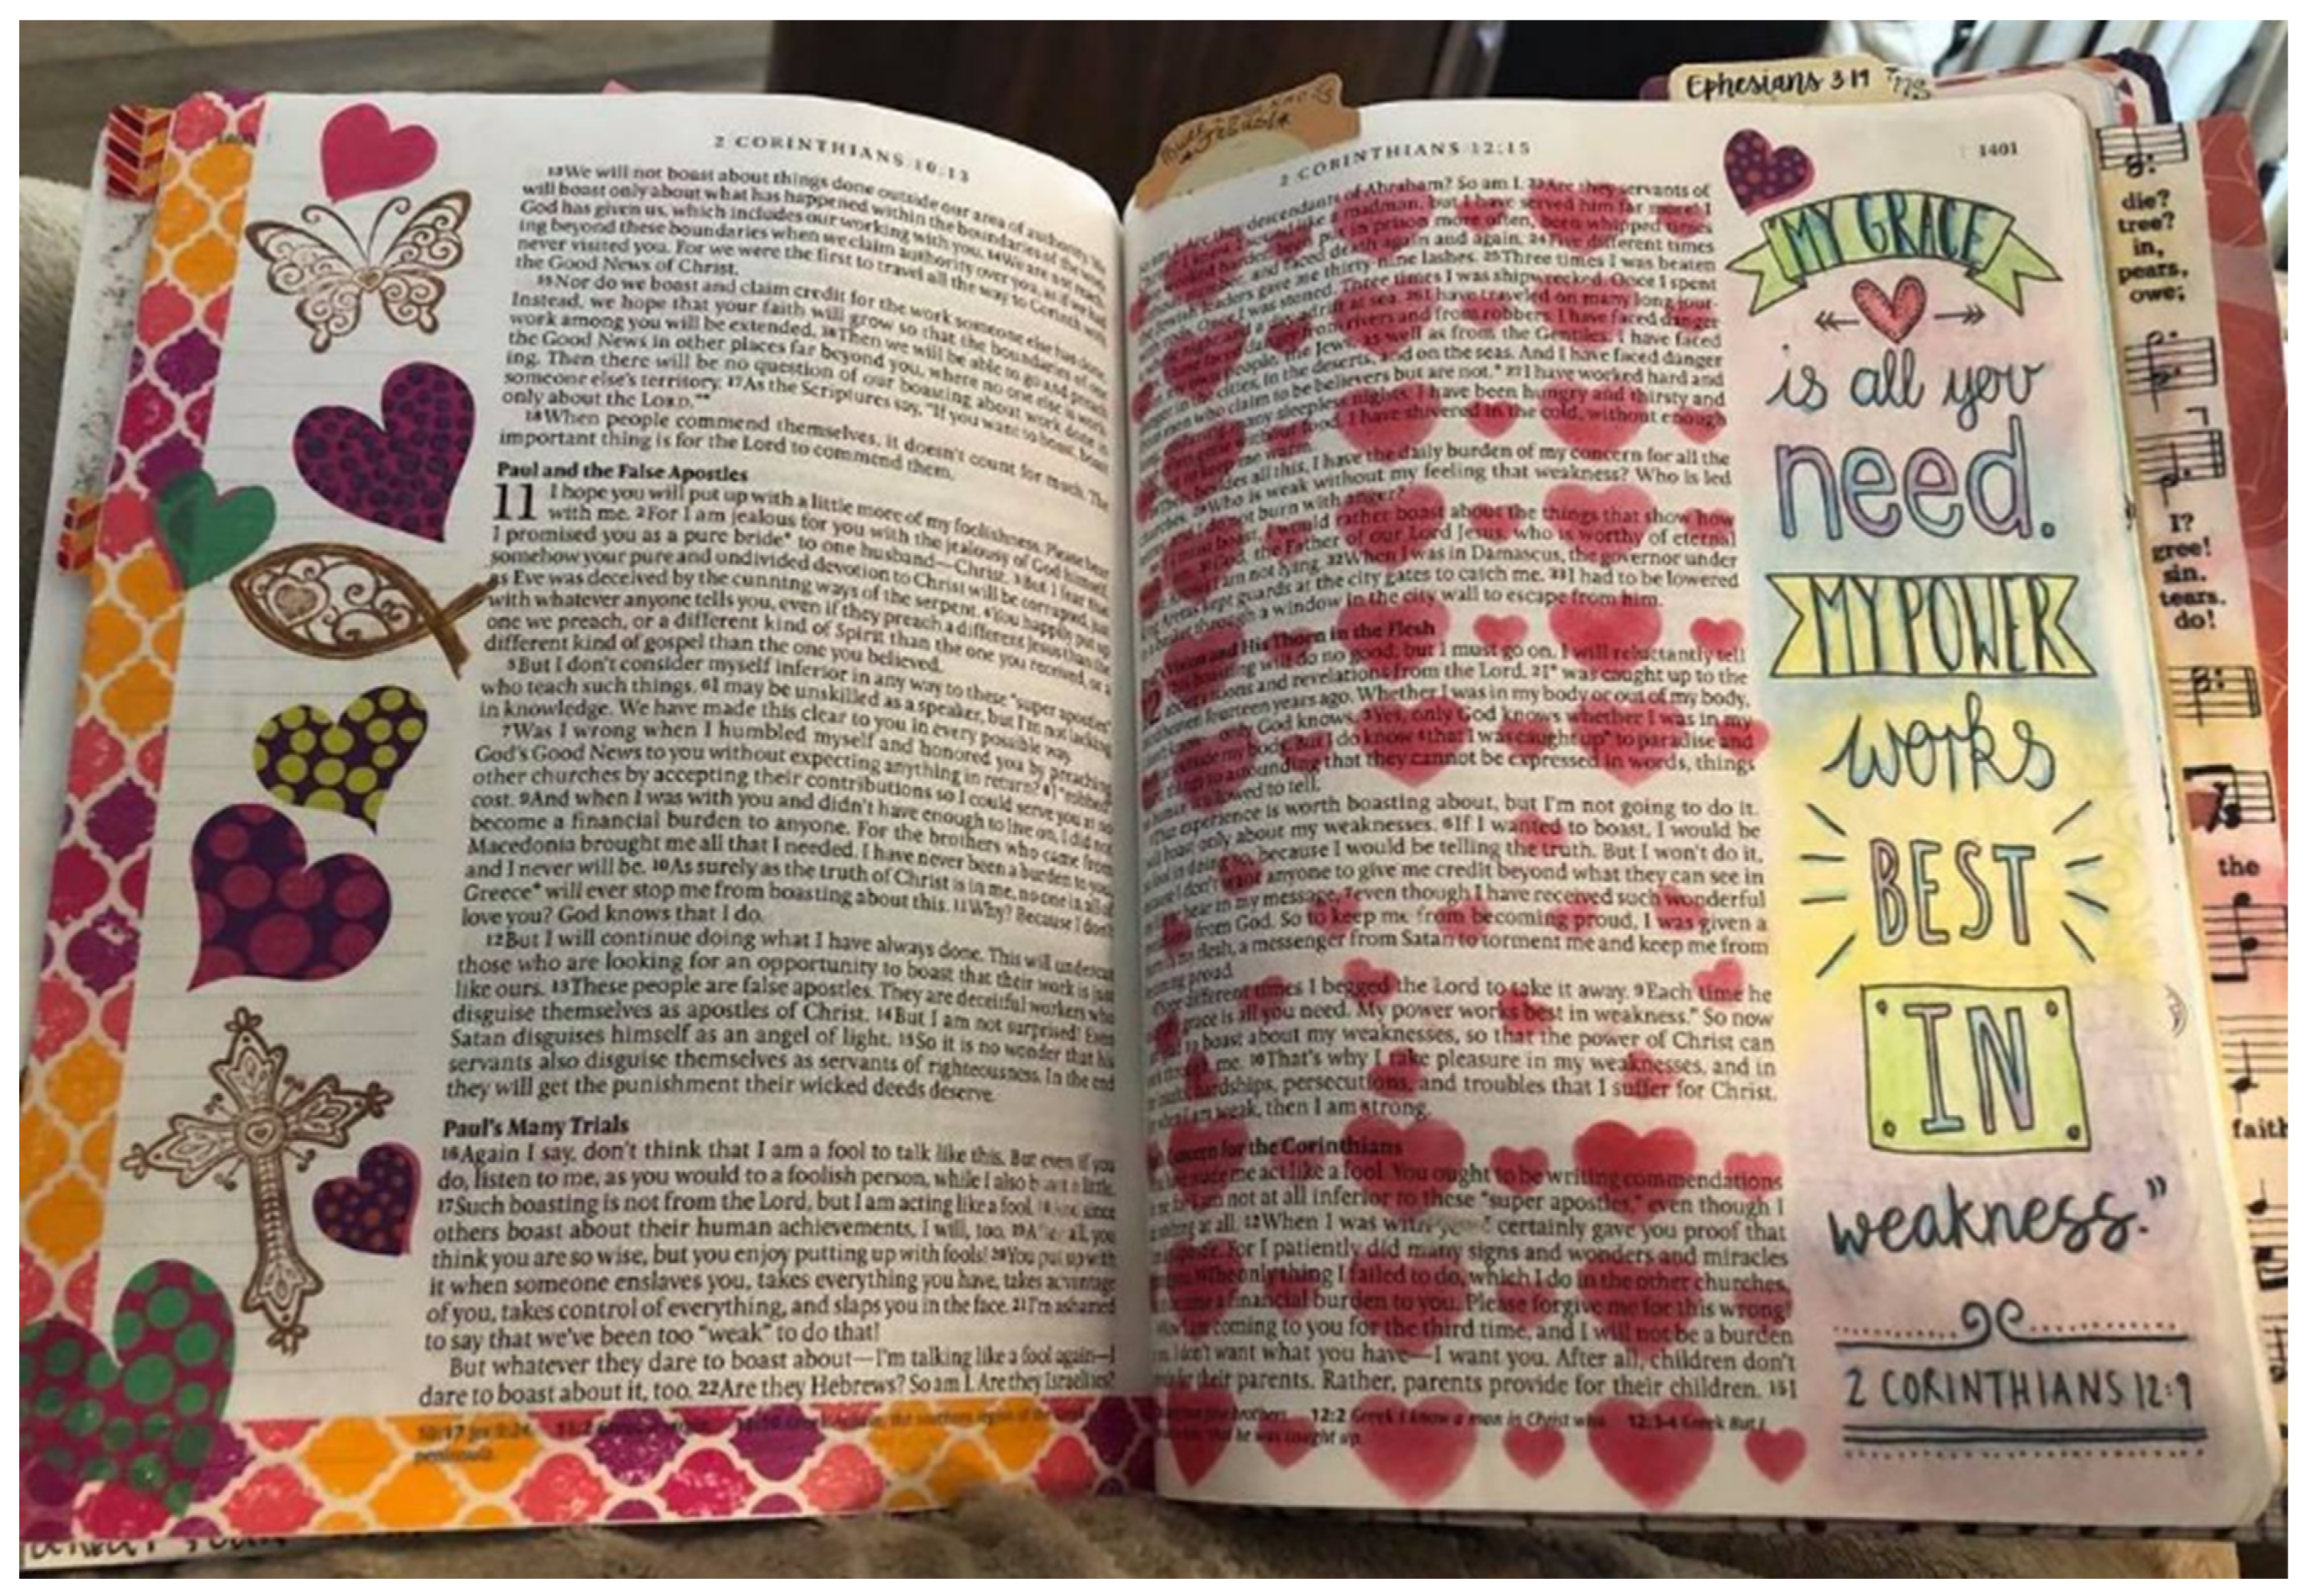 2 CORINTHIANS 10:13
13We will not boast about things done outside our area of authority. We
will boast only about what has happened within the boundaries of the work
God has given us, which includes our working with you. 14We are not reach-
ing beyond these boundaries when we claim authority over you, as if we had
never visited you. For we were the first to travel all the way to Corinth with
the Good News of Christ.
15Nor do we boast and claim credit for the work someone else has done.
Instead, we hope that your faith will grow so that the boundaries of our
work among you will be extended. 16Then we will be able to go and preach
the Good News in other places far beyond you, where no one else is work-
ing. Then there will be no question of our boasting about work done in
someone else's territory. 17As the Scriptures say, "If you want to boast, boast
only about the LORD."*
18When people commend themselves, it doesn't count for much. The
important thing is for the Lord to commend them.
Paul and the False Apostles
11 I hope you will put up with a little more of my foolishness. Please bear
with me. 2For I am jealous for you with the jealousy of God himself.
I promised you as a pure bride* to one husband—Christ. 3But I fear that
somehow your pure and undivided devotion to Christ will be corrupted, just
as Eve was deceived by the cunning ways of the serpent. 4You happily put up
with whatever anyone tells you, even if they preach a different Jesus than the
one we preach, or a different kind of Spirit than the one you received, or a
different kind of gospel than the one you believed.
5But I don't consider myself inferior in any way to these "super apostles"
who teach such things. 6I may be unskilled as a speaker, but I'm not lacking
in knowledge. We have made this clear to you in every possible way.
7Was I wrong when I humbled myself and honored you by preaching
God's Good News to you without expecting anything in return? 8I "robbed"
other churches by accepting their contributions so I could serve you at no
cost. 9And when I was with you and didn't have enough to live on, I did not
become a financial burden to anyone. For the brothers who came from
Macedonia brought me all that I needed. I have never been a burden to you,
and I never will be. 10As surely as the truth of Christ is in me, no one in all of
Greece* will ever stop me from boasting about this. 11Why? Because I don't
love you? God knows that I do.
12But I will continue doing what I have always done. This will undercut
those who are looking for an opportunity to boast that their work is just
like ours. 13These people are false apostles. They are deceitful workers who
disguise themselves as apostles of Christ. 14But I am not surprised! Even
Satan disguises himself as an angel of light. 15So it is no wonder that his
servants also disguise themselves as servants of righteousness. In the end
they will get the punishment their wicked deeds deserve.
Paul's Many Trials
16Again I say, don't think that I am a fool to talk like this. But even if you
do, listen to me, as you would to a foolish person, while I also boast a little.
17Such boasting is not from the Lord, but I am acting like a fool. 18And since
others boast about their human achievements, I will, too. 19After all, you
think you are so wise, but you enjoy putting up with fools! 20You put up with
it when someone enslaves you, takes everything you have, takes advantage
of you, takes control of everything, and slaps you in the face. 21I'm ashamed
to say that we've been too "weak" to do that!
But whatever they dare to boast about—I'm talking like a fool again—I
dare to boast about it, too. 22Are they Hebrews? So am I. Are they Israelites?
Ephesians 3:19
2 CORINTHIANS 12:15
1401
descendants of Abraham? So am I. 23Are they servants of
madman, but I have served him far more! I
put in prison more often, been whipped times
and faced death again and again. 24Five different times
leaders gave me thirty-nine lashes. 25Three times I was beaten
I was stoned. Three times I was shipwrecked. Once I spent
adrift at sea. 26I have traveled on many long jour-
from rivers and from robbers. I have faced danger
people, the Jews, as well as from the Gentiles. I have faced
cities, in the deserts, and on the seas. And I have faced danger
men who claim to be believers but are not.* 27I have worked hard and
many sleepless nights. I have been hungry and thirsty and
without food. I have shivered in the cold, without enough
keep me warm.
besides all this, I have the daily burden of my concern for all the
29Who is weak without my feeling that weakness? Who is led
do not burn with anger?
I would rather boast about the things that show how
God, the Father of our Lord Jesus, who is worthy of eternal
I am not lying. 32When I was in Damascus, the governor under
kept guards at the city gates to catch me. 33I had to be lowered
through a window in the city wall to escape from him.
Vision and His Thorn in the Flesh
12 boasting will do no good, but I must go on. I will reluctantly tell
visions and revelations from the Lord. 2I* was caught up to the
fourteen years ago. Whether I was in my body or out of my body,
only God knows. 3Yes, only God knows whether I was in my
outside my body. But I do know 4that I was caught up* to paradise and
astounding that they cannot be expressed in words, things
allowed to tell.
experience is worth boasting about, but I'm not going to do it.
boast only about my weaknesses. 6If I wanted to boast, I would be
because I would be telling the truth. But I won't do it,
I don't want anyone to give me credit beyond what they can see in
hear in my message, 7even though I have received such wonderful
from God. So to keep me from becoming proud, I was given a
flesh, a messenger from Satan to torment me and keep me from
proud.
different times I begged the Lord to take it away. 9Each time he
grace is all you need. My power works best in weakness." So now
boast about my weaknesses, so that the power of Christ can
me. 10That's why I take pleasure in my weaknesses, and in
hardships, persecutions, and troubles that I suffer for Christ.
weak, then I am strong.
Concern for the Corinthians
made me act like a fool. You ought to be writing commendations
not at all inferior to these "super apostles," even though I
at all. 12When I was with you, I certainly gave you proof that
For I patiently did many signs and wonders and miracles
The only thing I failed to do, which I do in the other churches,
a financial burden to you. Please forgive me for this wrong!
coming to you for the third time, and I will not be a burden
I don't want what you have—I want you. After all, children don't
their parents. Rather, parents provide for their children. 15I
12:2 Greek I know a man in Christ who 12:3-4 Greek But I
he was caught up.
"MY GRACE
is all you
need.
MY POWER
works
BEST
IN
weakness."
2 CORINTHIANS 12:9
die?
tree?
in,
pears,
owe;
I?
gree!
sin.
tears.
do!
the
faith